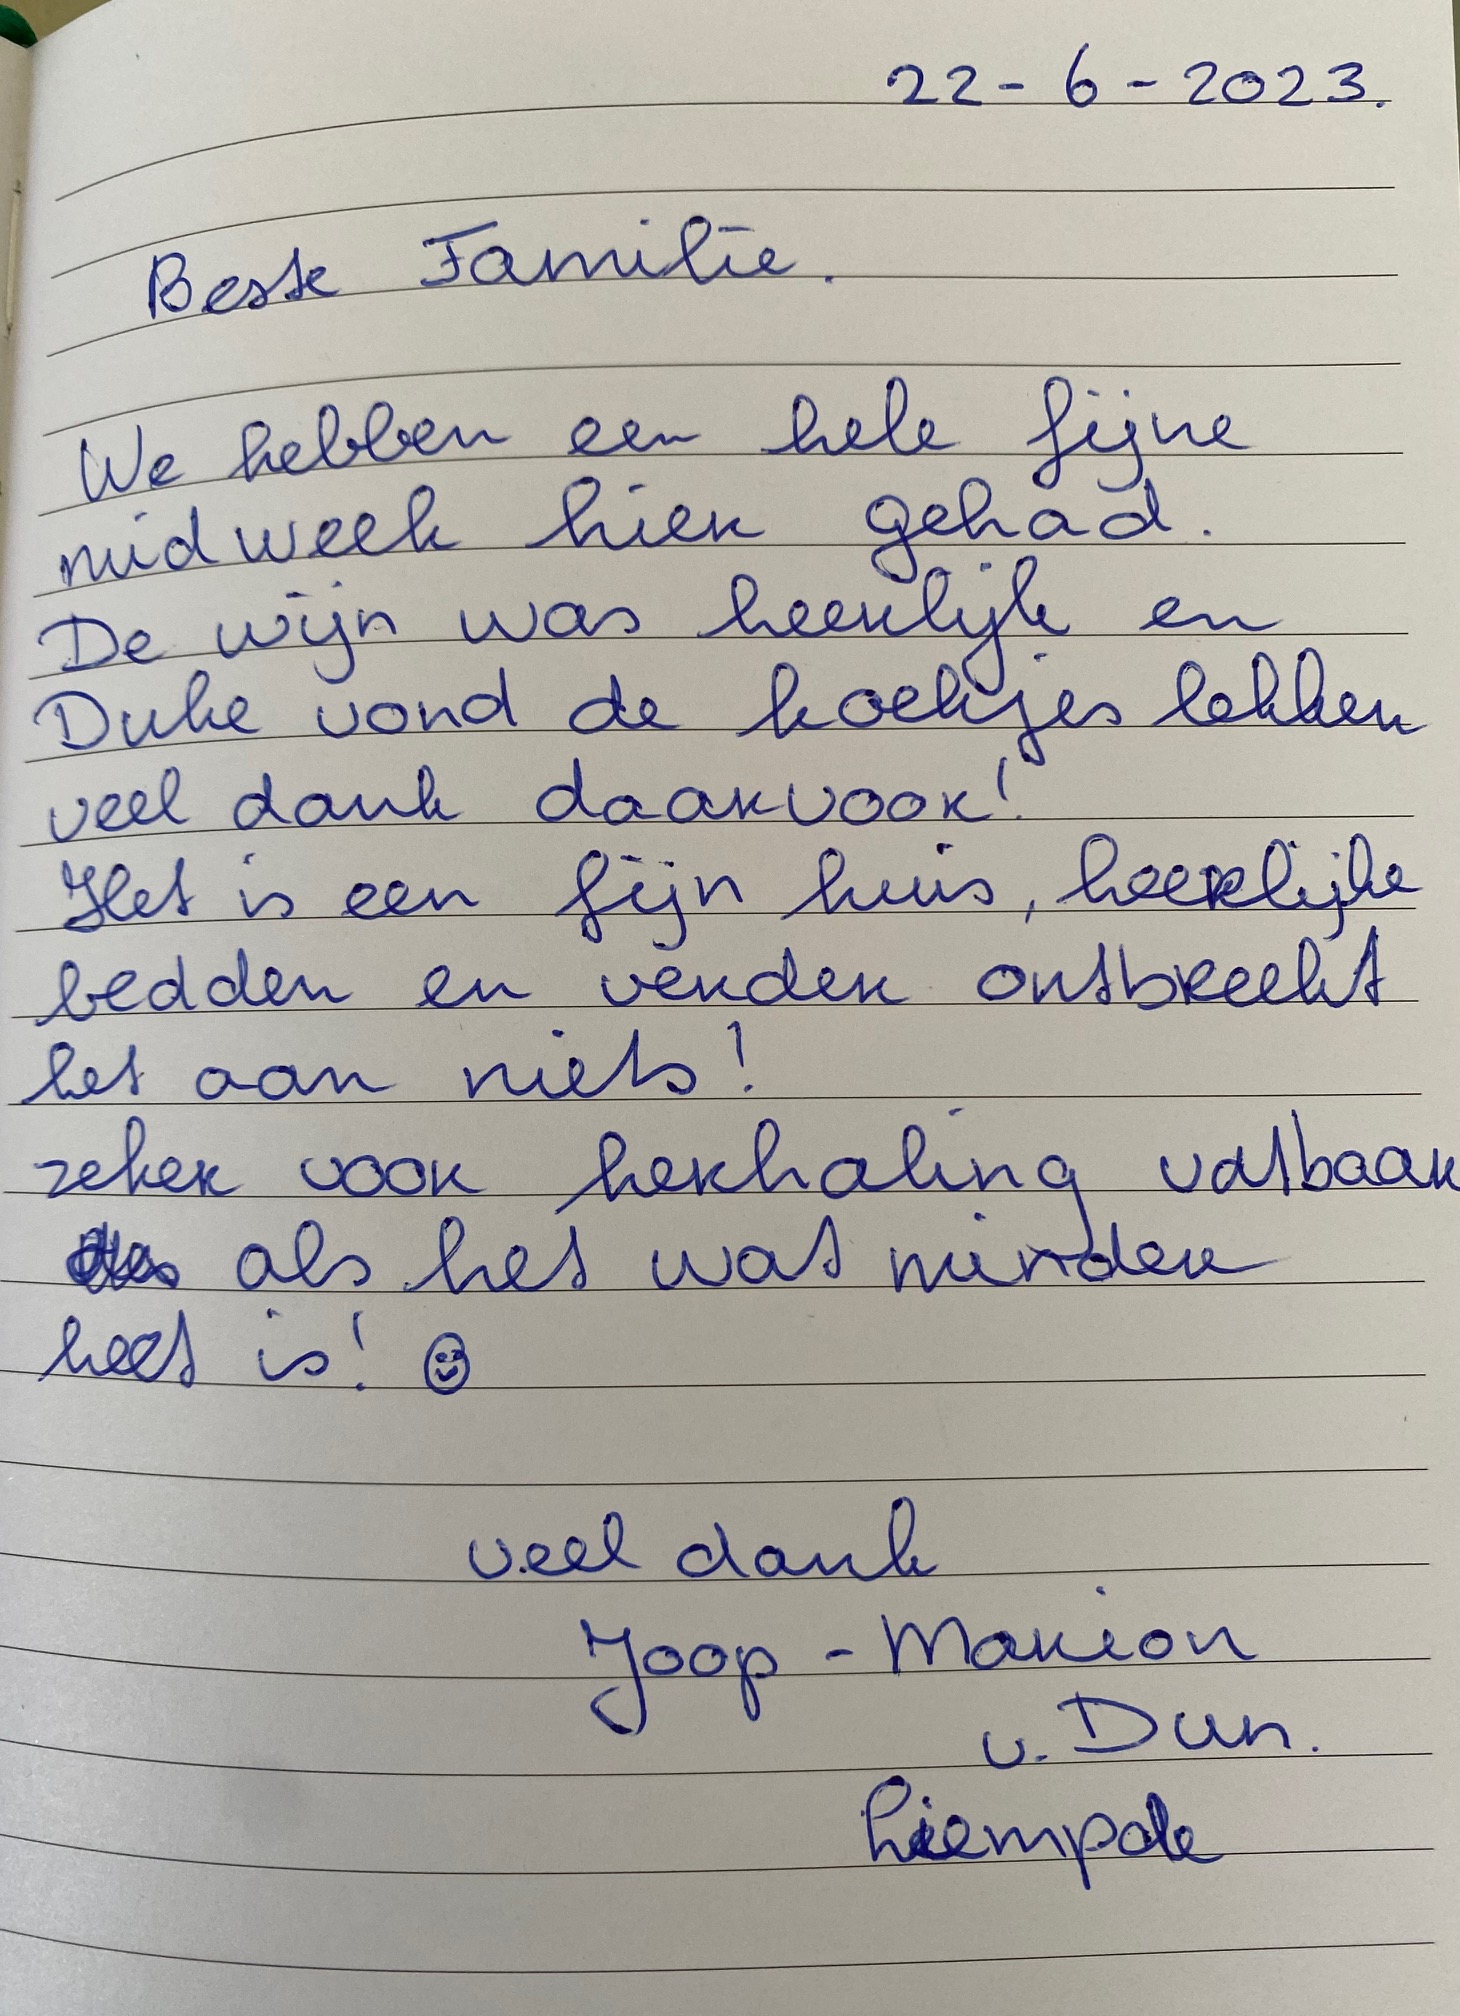 22-6-2023.
Beste Familie.
We hebben een hele fijne
midweek hier gehad.
De wijn was heerlijk en
Duke vond de koekjes lekker
veel dank daarvoor!
Het is een fijn huis, heerlijke
bedden en verder ontbreekt
het aan niets!
zeker voor herhaling vatbaar
als het wat minder
heet is! ☺
veel dank
Joop - Marion
v. Dun.
Liempde